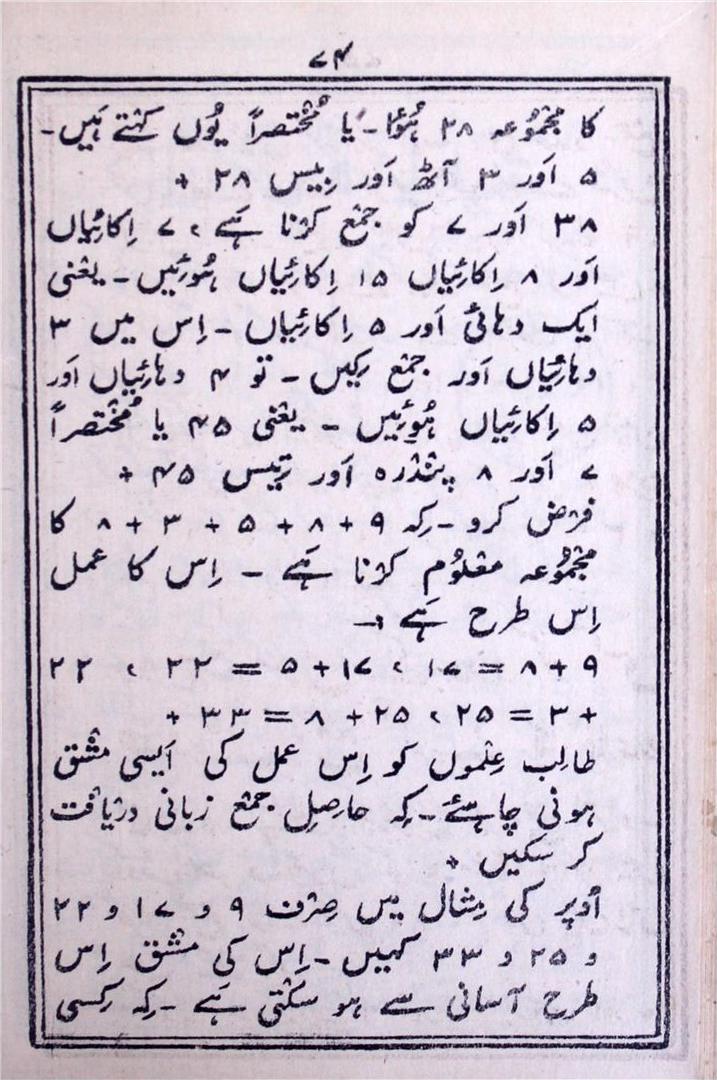 ۷۴
کا مجمُوُعہ ۲۸ ہُؤا۔ یا مُخْتصراً یُوں کہتے ہَیں۔
۵ اَور ۳ آٹھ اَور بِیس ۲۸ +
۳۸ اَور ۷ کو جمْع کرْنا ہَے ، ۷ اِکائِیاں
اَور ۸ اِکائِیاں ۱۵ اِکائِیاں ہُوئِیں۔ یعْنی
ایک دہائی اَور ۵ اِکائِیاں۔ اِس میں ۳
دہائِیاں اَور جمْع کِیں۔ تو ۴ دہائِیاں اَور
۵ اِکائِیاں ہُوئِیں۔ یعْنی ۴۵ یا مُخْتصراً
۷ اَور ۸ پنْدرہ اَور تِیس ۴۵ +
فرْض کرو۔ کِہ ۹ + ۸ + ۵ + ۳ + ۸ کا
مجْمُوُعہ معْلُوُم کرْنا ہَے۔ اِس کا عمل
اِس طرح ہَے :۔
۹ + ۸ = ۱۷ ، ۱۷ + ۵ = ۲۲ ، ۲۲
+ ۳ = ۲۵ ، ۲۵ + ۸ = ۳۳ +
طالِب عِلْموں کو اِس عمل کی اَیسی مشْق
ہونی چاہئے۔ کِہ حاصِلِ جمْع زبانی درْیافْت
کر سکیں +
اُوپر کی مِثال میں صِرْف ۹ و ۱۷ و ۲۲
و ۲۵ و ۳۳ کہیں۔ اِس کی مشْق اِس
طرح آسانی سے ہو سکْتی ہَے۔ کِہ کِسی